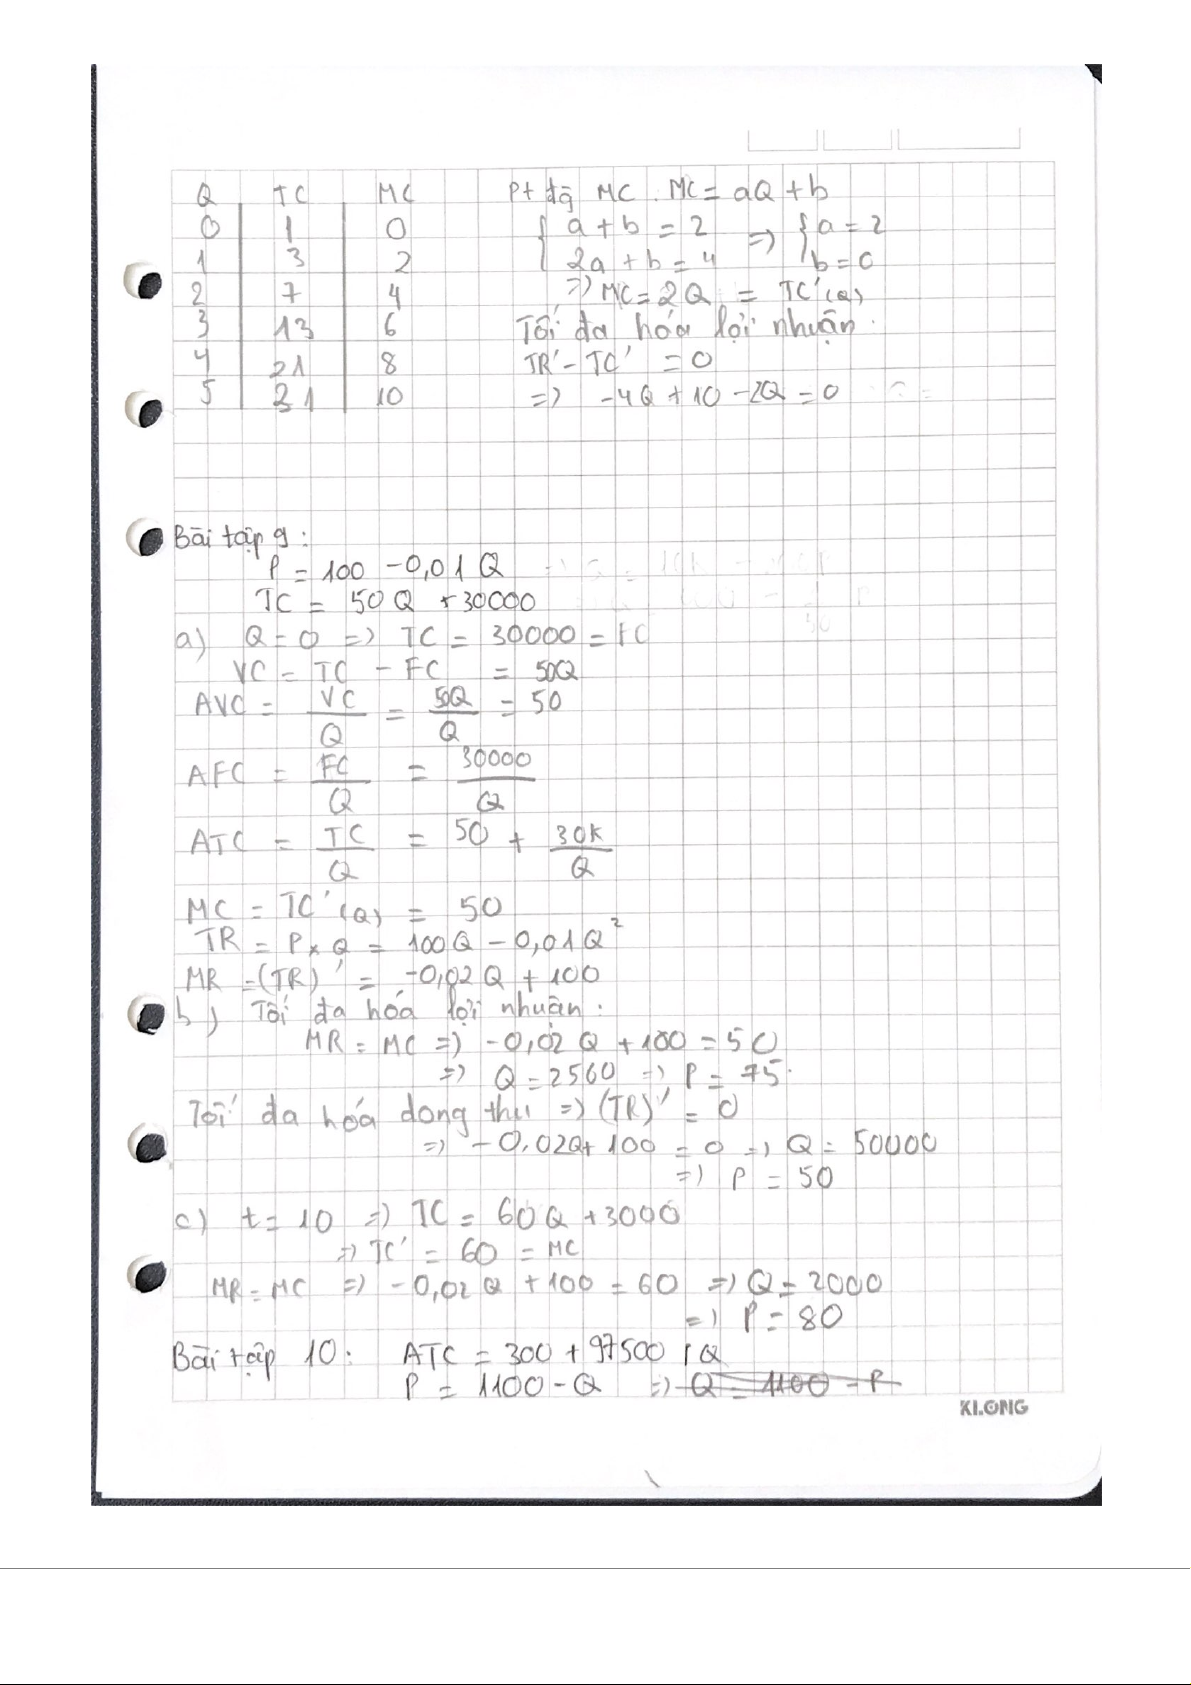 Q TC MC Pt đg MC. MC = aQ + b
0 1 0 { a + b = 2 => { a = 2
1 3 2 2a + b = 4 b = 0
2 7 4 => MC = 2Q = TC'(Q)
3 13 6 Tối đa hóa lợi nhuận.
4 21 8 TR' - TC' = 0
5 31 10 => -4Q + 10 - 2Q = 0
Bài tập 9:
P = 100 - 0,01Q
TC = 50Q + 30000
a) Q = 0 => TC = 30000 = FC
VC = TC - FC = 50Q
AVC = VC/Q = 50Q/Q = 50
AFC = FC/Q = 30000/Q
ATC = TC/Q = 50 + 30K/Q
MC = TC'(Q) = 50
TR = P x Q = 100Q - 0,01Q²
MR = (TR)' = -0,02Q + 100
b) Tối đa hóa lợi nhuận:
MR = MC => -0,02Q + 100 = 50
=> Q = 2560 => P = 75.
Tối đa hóa dong thu => (TR)' = 0
=> -0.02Q + 100 = 0 => Q = 50000
=> P = 50
c) t = 10 => TC = 60Q + 3000
=> TC' = 60 = MC
MR = MC => -0,02Q + 100 = 60 => Q = 2000
=> P = 80
Bài tập 10: ATC = 300 + 97500/Q
P = 1100 - Q => Q = 1100 - P
KLONG